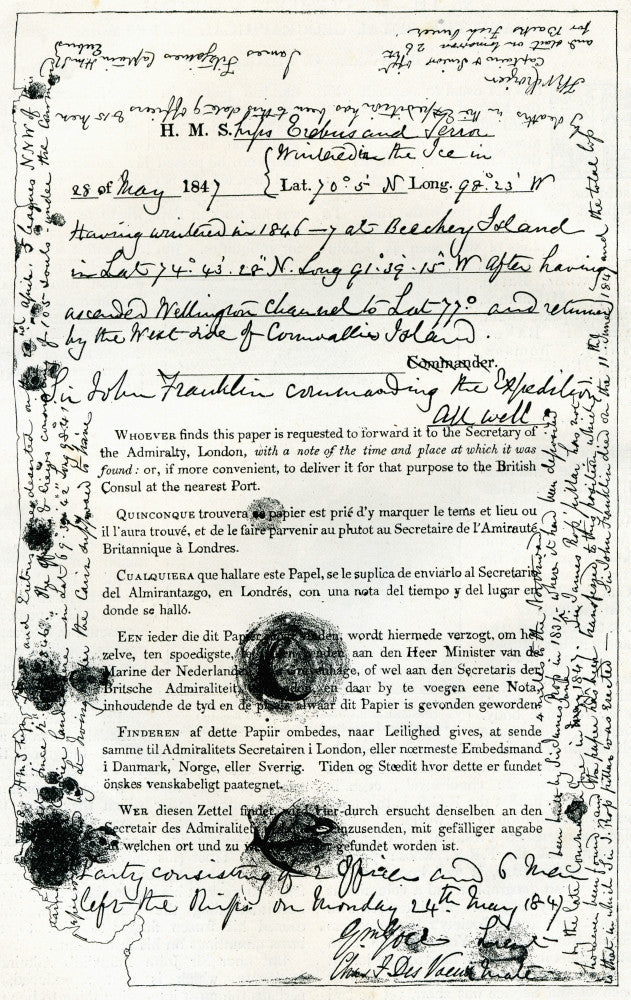 H. M. Ships Erebus and Terror
Wintered in the Ice in
28 of May 1847 { Lat. 70° 5' N Long. 98° 23' W
Having wintered in 1846—7 at Beechey Island
in Lat 74° 43' 28" N. Long 91° 39' 15" W after having
ascended Wellington Channel to Lat 77° and returned
by the West side of Cornwallis Island.
Commander.
Sir John Franklin commanding the Expedition
All well
WHOEVER finds this paper is requested to forward it to the Secretary of
the Admiralty, London, with a note of the time and place at which it was
found: or, if more convenient, to deliver it for that purpose to the British
Consul at the nearest Port.
QUINCONQUE trouvera ce papier est prié d'y marquer le tems et lieu ou
il l'aura trouvé, et de le faire parvenir au plutot au Secretaire de l'Amirauté
Britannique à Londres.
CUALQUIERA que hallare este Papel, se le suplica de enviarlo al Secretario
del Almirantazgo, en Londrés, con una nota del tiempo y del lugar en
donde se halló.
EEN ieder die dit Papier vinden, wordt hiermede verzogt, om het
zelve, ten spoedigste, te zenden aan den Heer Minister van de
Marine der Nederlanden, of wel aan den Secretaris der
Britsche Admiraliteit, en daar by te voegen eene Nota,
inhoudende de tyd en de plaats alwaar dit Papier is gevonden geworden
FINDEREN af dette Papiir ombedes, naar Leilighed gives, at sende
samme til Admiralitets Secretairen i London, eller nœrmeste Embedsmand
i Danmark, Norge, eller Sverrig. Tiden og Stœdit hvor dette er fundet
önskes venskabeligt paategnet.
WER diesen Zettel findet, wird hier-durch ersucht denselben an den
Secretair des Admiralitets in einzusenden, mit gefälliger angabe
an welchen ort und zu gefundet worden ist.
Party consisting of 2 Officers and 6 Men
left the Ships on Monday 24th May 1847
Gm Gore Lieut
Chas F Des Voeux Mate
H.M. Ships and Erebus were deserted on the April 5 leagues NNW of this
since 12th 1846. The Officers & Crews consisting of 105 souls under the command
landed here in Lat 69° 42' Long 98° 41'
by Lt Irving under the Cairn supposed to have
been built by Sir James Ross in 1831 where it had been deposited 4 miles to the Northward
by the late Commander Gore in June 1847. Sir James Ross' pillar has not
however been found and the paper has been transferred to this position which
is that in which Sir J. Ross pillar was erected — Sir John Franklin died on the 11th June 1847 and the total loss
by deaths in the Expedition has been to this date 9 officers & 15 men
James Fitzjames Captain HMS Erebus
FRM Crozier
Captain & Senior Offr
and start on tomorrow 26th
for Backs Fish River